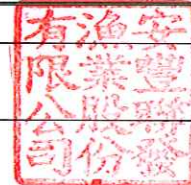 安豐聯發
漁業股份
有限公司